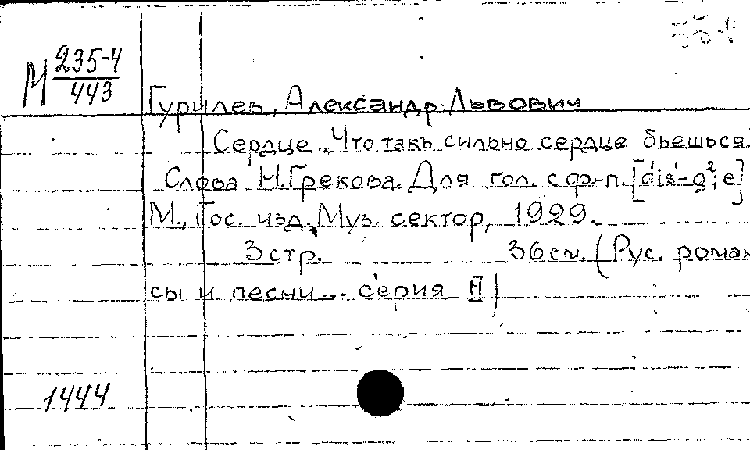 М 235-4
443
Гурилев, Александр Львович
Сердце. Что такъ сильно сердце бьешься.
Слова Н. Грекова. Для гол. с ф-п. [dis'-g²; e]
М., Гос. изд. Муз. сектор, 1929.
3 стр. 36 см. (Рус. роман
сы и песни... серия II)
1444